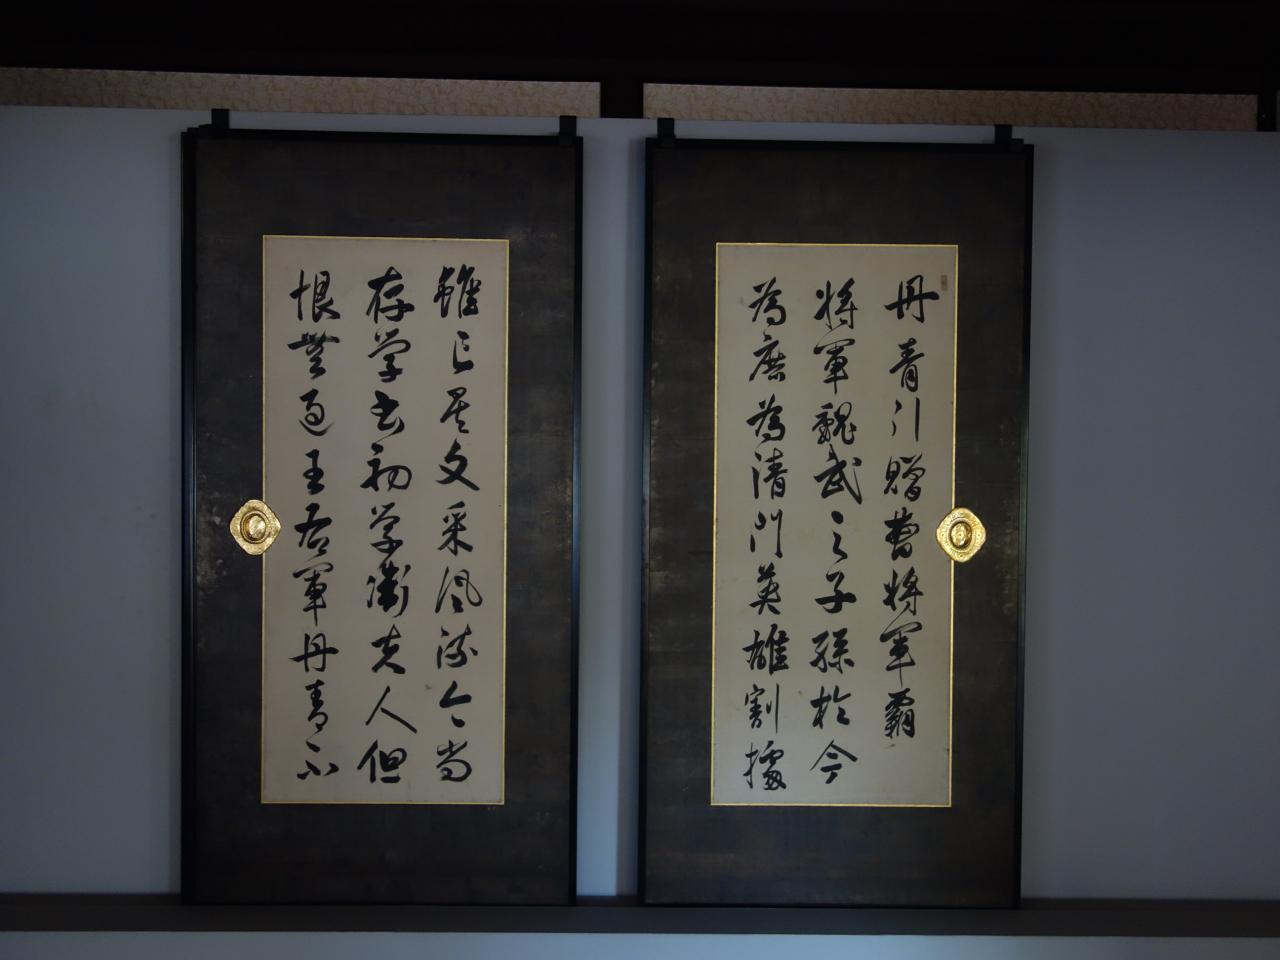 丹青引贈曹将軍霸
将軍魏武之子孫於今
為庶為清門英雄割據
雖已矣文采風流今尚
存学書初学衛夫人但
恨無過王右軍丹青不